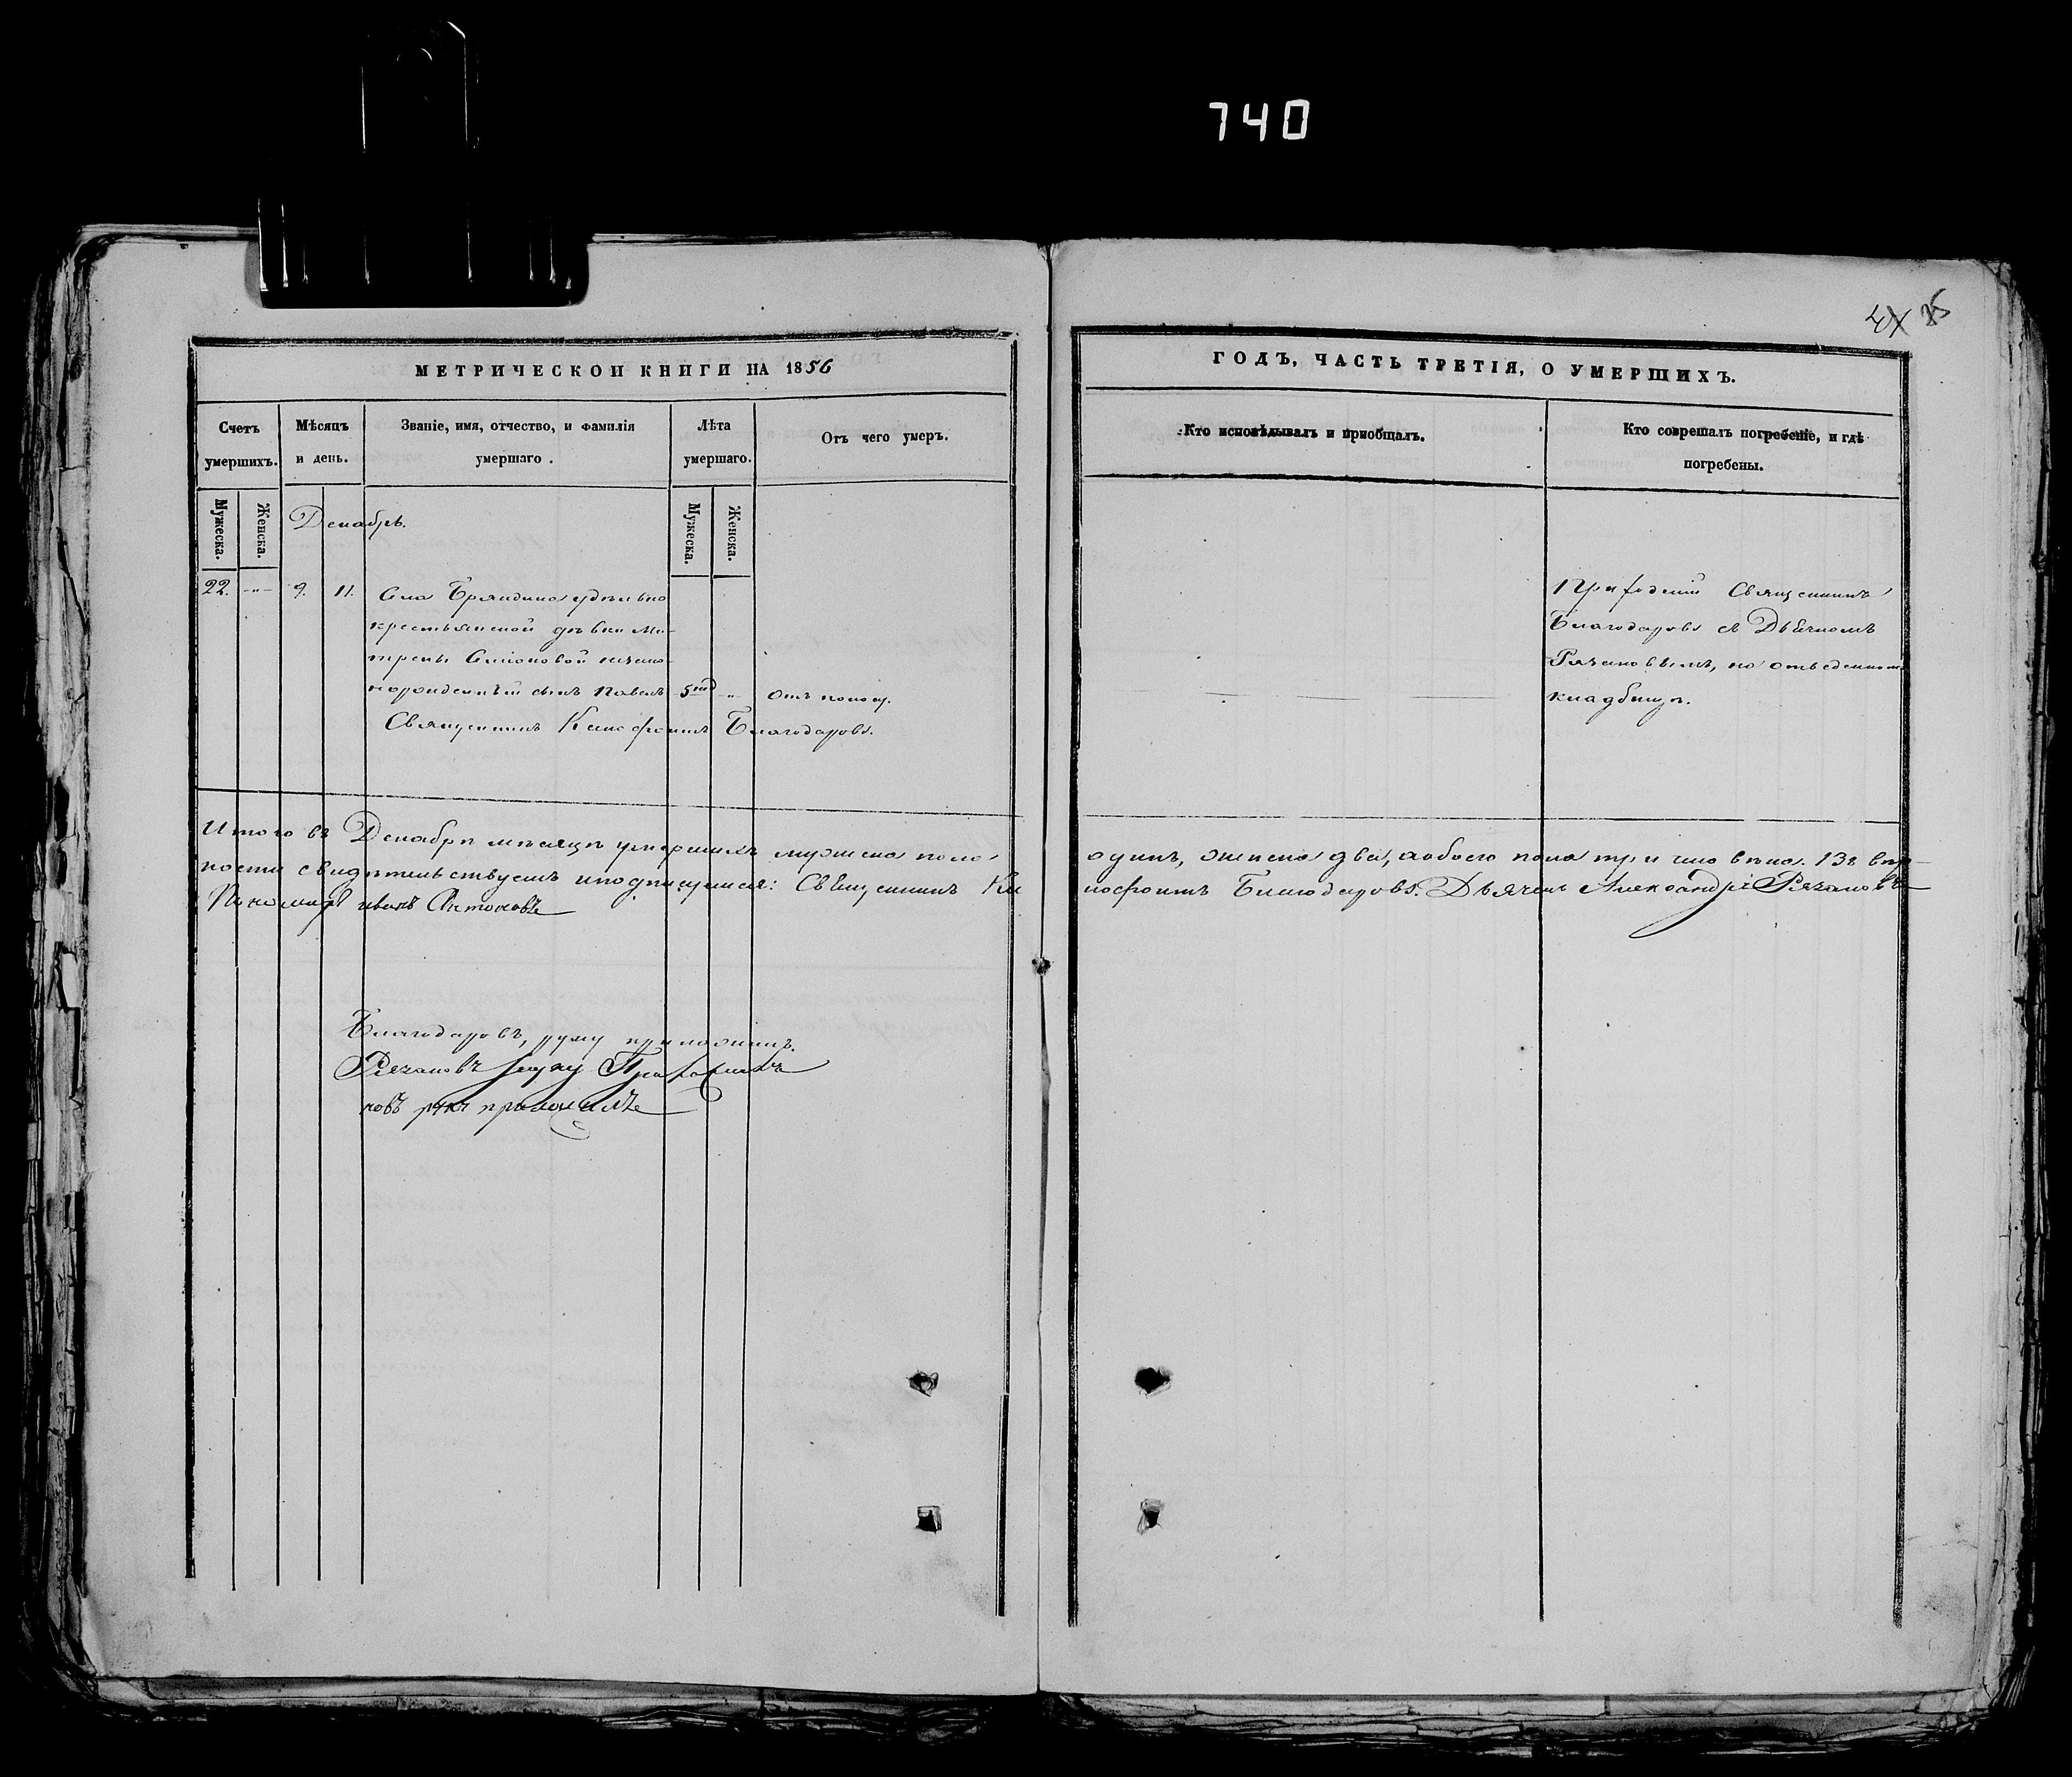 740
МЕТРИЧЕСКОИ КНИГИ НА 1856
Счетъ умершихъ.
Мѣсяцъ и день.
Званіе, имя, отчество, и фамилія умершаго.
Лѣта умершаго.
Отъ чего умеръ.
Мужеска.
Женска.
Мужеска.
Женска.
Декабрь.
22. -"- 9. 11. Села Бряндина удѣльно
крестьянской дѣвки Ма-
трены Симоновой незако-
норожденный сынъ Павелъ 5 " Отъ поносу.
Священникъ Ксенофонтъ Благодаровъ.
Итого въ Декабрѣ мѣсяцѣ умершихъ мужеска пола
ности свидѣтельствуемъ и подписуемся: Священникъ Ксе
Пономарь Иванъ Антоновъ
Благодаровъ, руку приложилъ.
Рязановъ руку Приложилъ
новъ руку приложилъ
ГОДЪ, ЧАСТЬ ТРЕТІЯ, О УМЕРШИХЪ.
Кто исповѣдывалъ и пріобщалъ.
Кто совершалъ погребеніе, и гдѣ погребены.
Приходскій Священникъ
Благодаровъ съ Дьячкомъ
Рязановымъ, на отведенномъ
кладбищѣ.
одинъ, женска два, а обоего пола три человѣка. Въ вѣр-
нофонтъ Благодаровъ. Дьячекъ Александръ Рязановъ